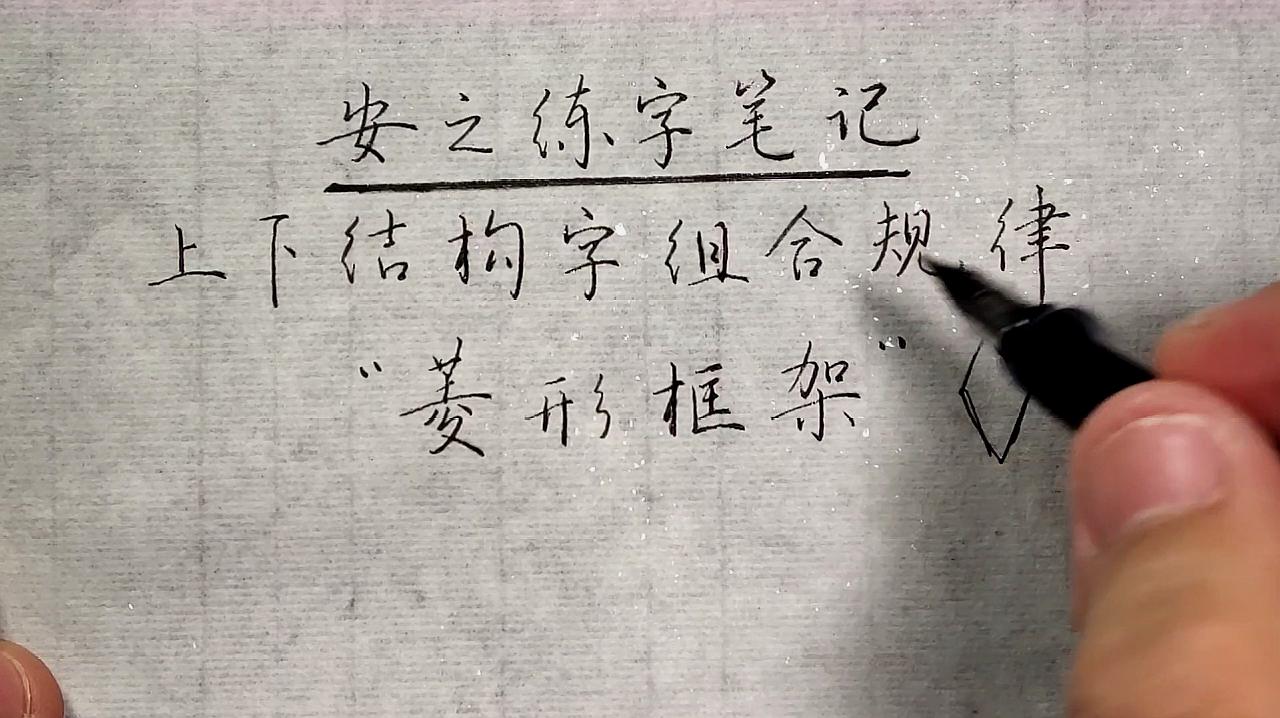 安之练字笔记
上下结构字组合规律
“菱形框架”